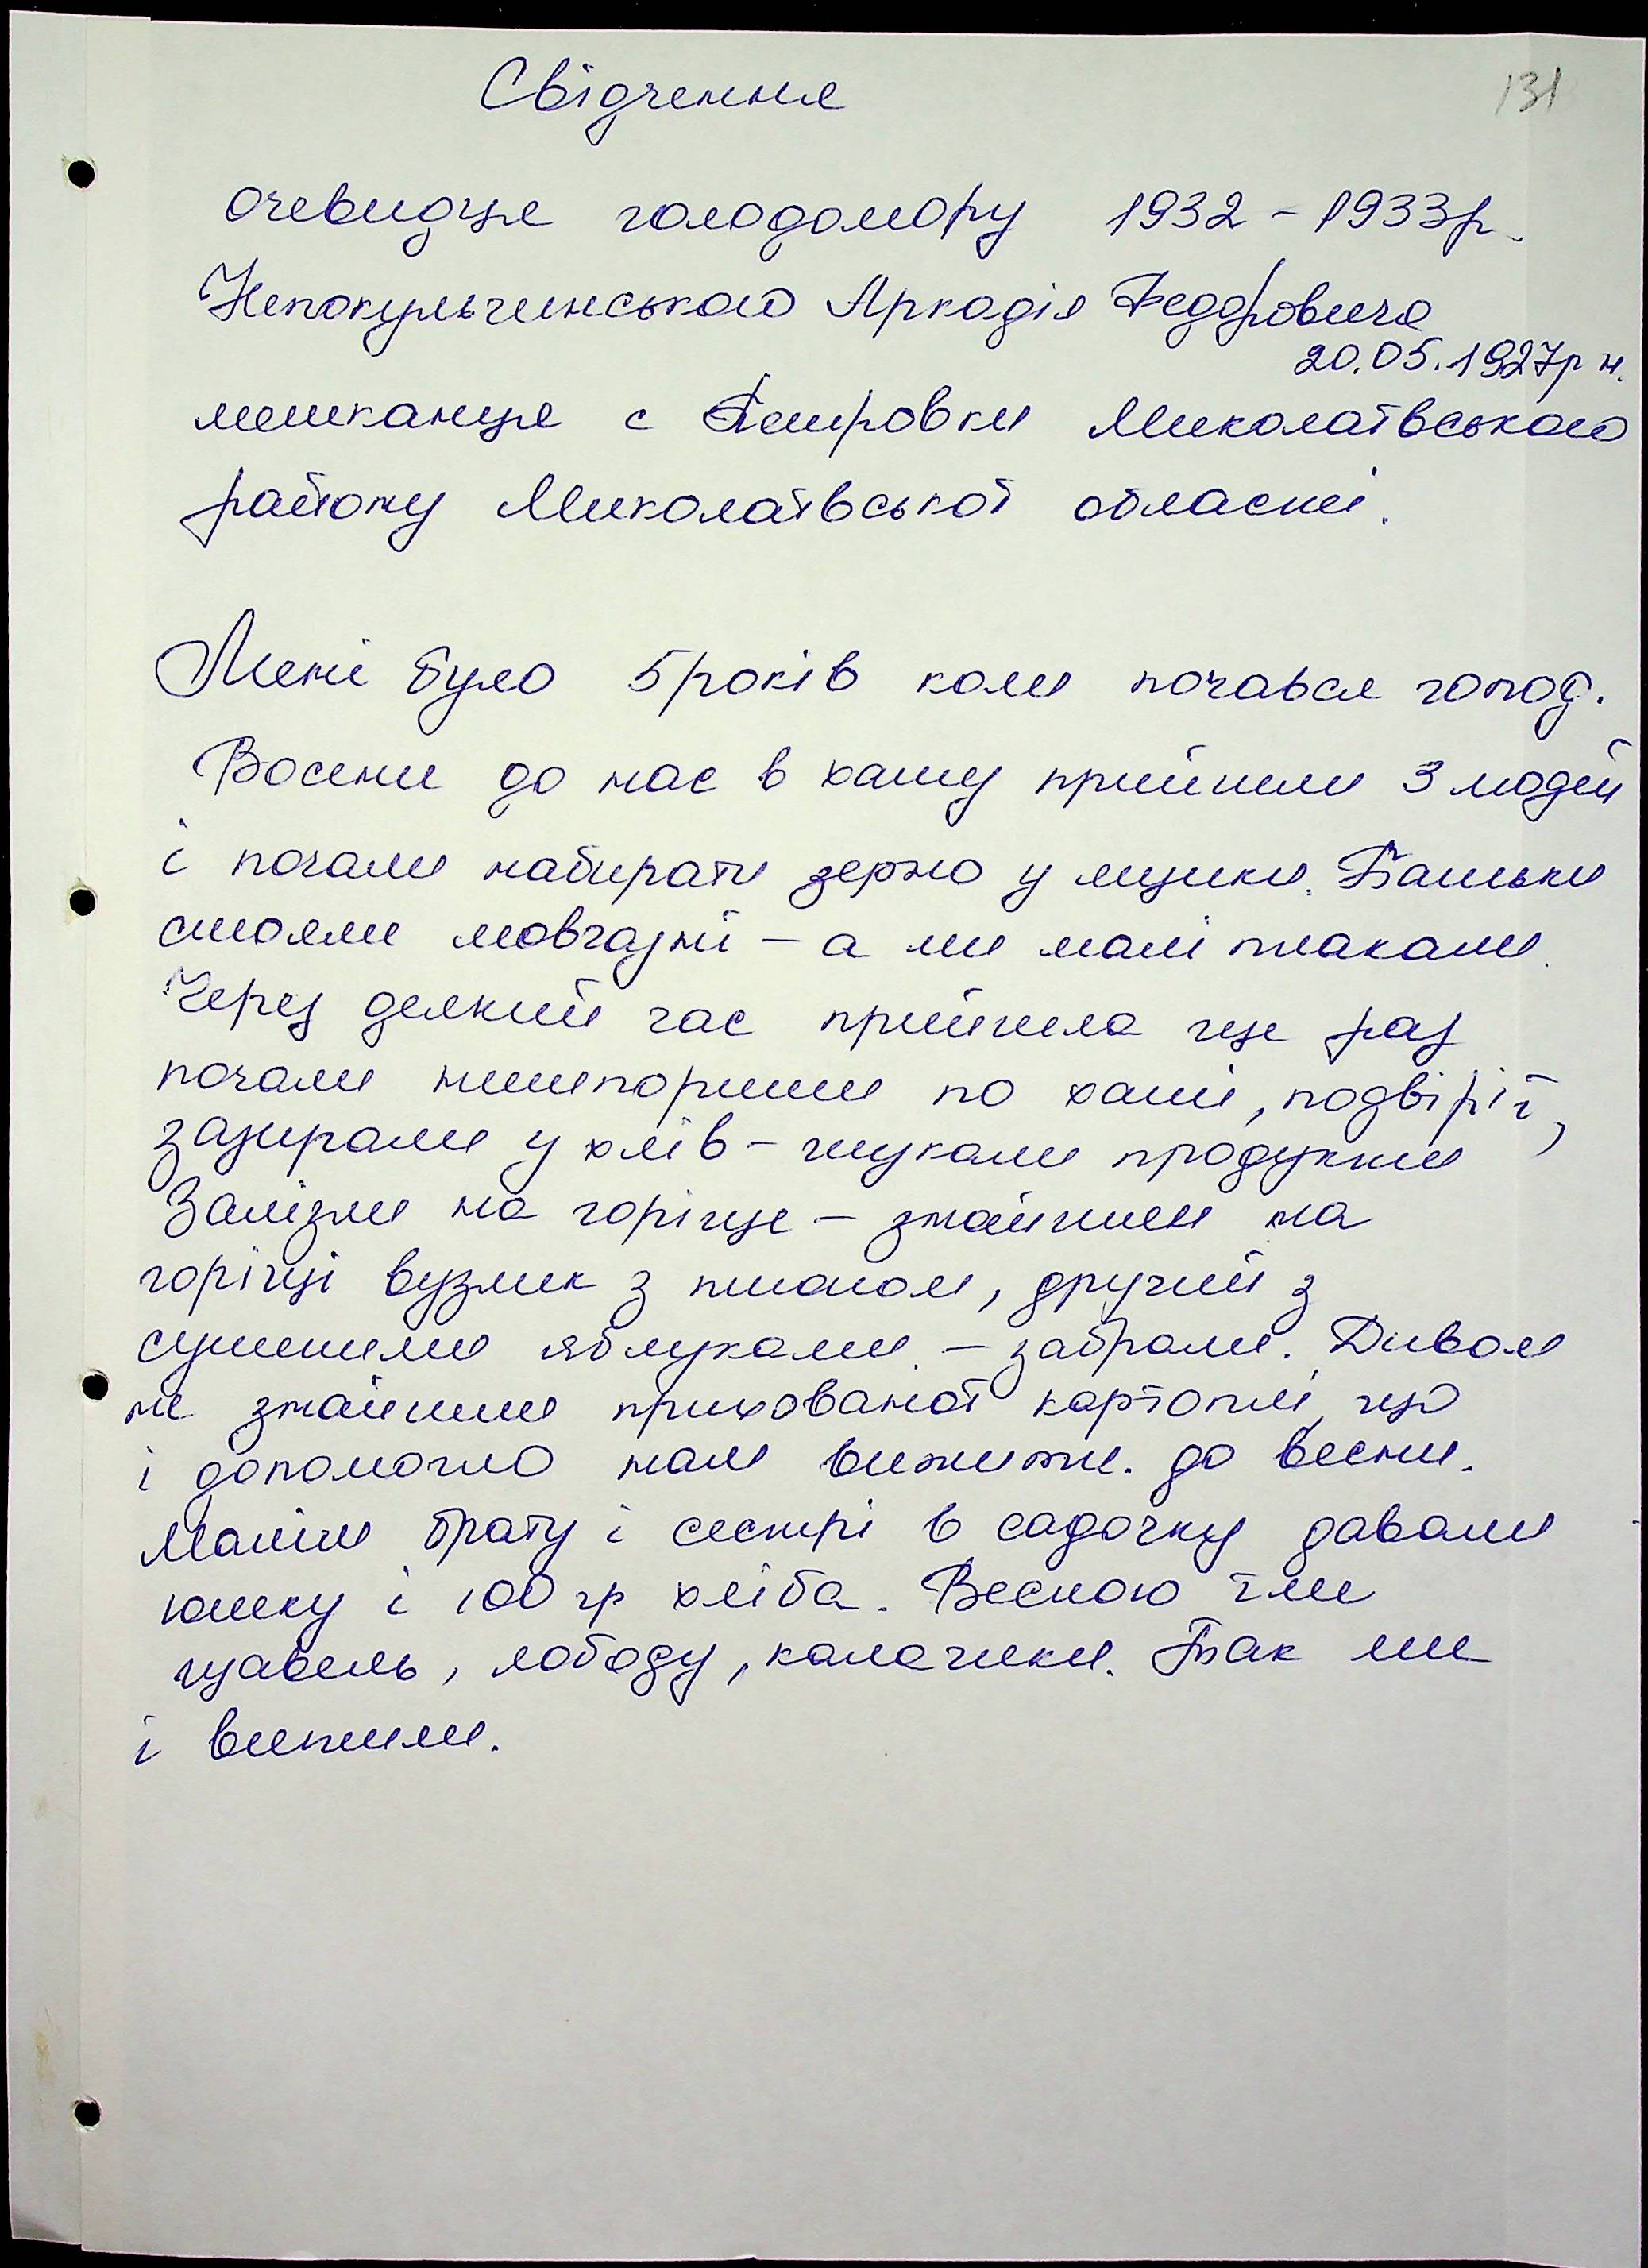 Свідчення
131
очевидця голодомору 1932 - 1933р.
Непокульчинського Аркадія Федоровича
20.05.1927р н.
мешканця с Петровки Миколаївського
району Миколаївської області.
Мені було 5 років коли почався голод.
Восени до нас в хату прийшли 3 людей
і почали набирати зерно у мішки. Батьки
стояли мовчазні - а ми малі плакали.
Через деякий час прийшла ще раз
почали нишпорити по хаті, подвірії,
зазирали у хлів - шукали продукти
Залізли на горище - знайшли на
горищі вузлик з пшоном, другий з
сушеними яблуками. - забрали. Дивом
не знайшли прихованої картоплі, що
і допомогло нам вижити. до весни.
Малим брату і сестрі в садочку давали
юшку і 100 гр хліба. Весною їли
щавель, лободу, калачики. Так ми
і вижили.